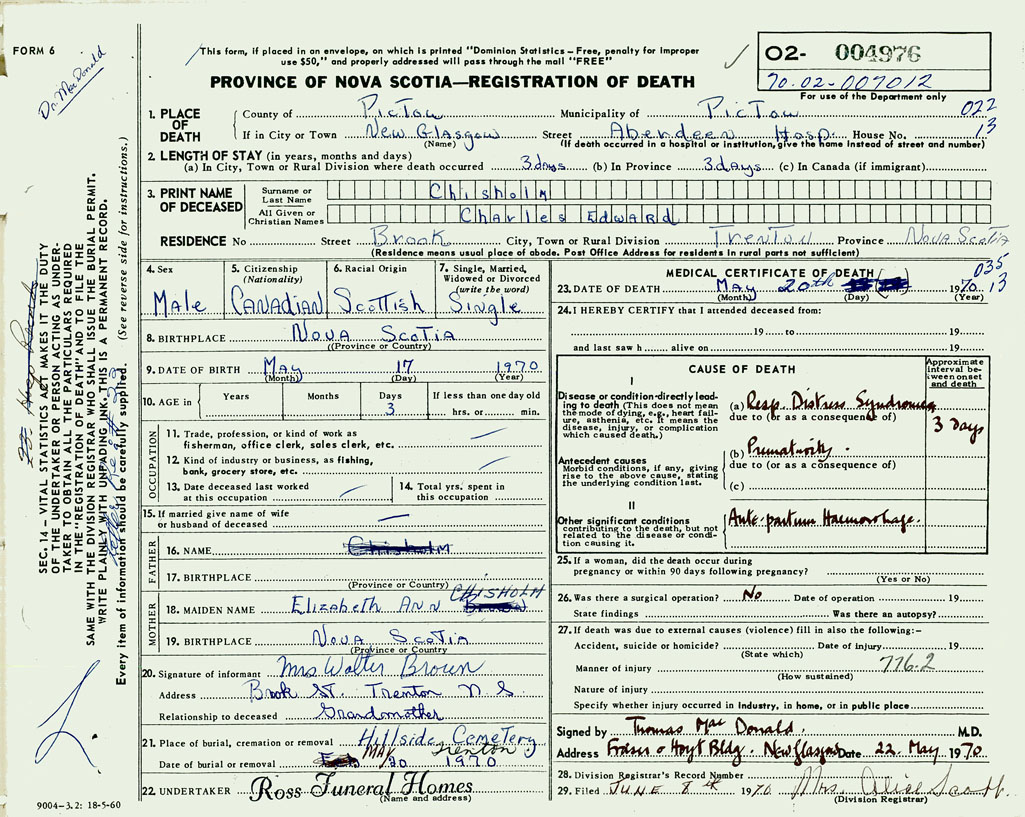 FORM 6
Dr. MacDonald
This form, if placed in an envelope, on which is printed "Dominion Statistics – Free, penalty for improper
use $50," and properly addressed will pass through the mail "FREE"
O2- 004976
70.02-007012
For use of the Department only
PROVINCE OF NOVA SCOTIA—REGISTRATION OF DEATH
1. PLACE OF DEATH
County of Pictou Municipality of Pictou 022
If in City or Town New Glasgow Street Aberdeen Hosp. House No. 13
(Name) (If death occurred in a hospital or institution, give the name instead of street and number)
2. LENGTH OF STAY (in years, months and days)
(a) In City, Town or Rural Division where death occurred 3 days (b) In Province 3 days (c) In Canada (if immigrant)
3. PRINT NAME OF DECEASED
Surname or Last Name Chisholm
All Given or Christian Names Charles Edward
RESIDENCE No Street Brook City, Town or Rural Division Trenton Province Nova Scotia
(Residence means usual place of abode. Post Office Address for residents in rural parts not sufficient)
4. Sex
Male
5. Citizenship
(Nationality)
Canadian
6. Racial Origin
Scottish
7. Single, Married,
Widowed or Divorced
(write the word)
Single
8. BIRTHPLACE Nova Scotia
(Province or Country)
9. DATE OF BIRTH May 17 1970
(Month) (Day) (Year)
10. AGE in
Years Months Days If less than one day old
3 hrs. or min.
OCCUPATION
11. Trade, profession, or kind of work as
fisherman, office clerk, sales clerk, etc.
12. Kind of industry or business, as fishing,
bank, grocery store, etc.
13. Date deceased last worked
at this occupation
14. Total yrs. spent in
this occupation
15. If married give name of wife
or husband of deceased
FATHER
16. NAME Chisholm
17. BIRTHPLACE
(Province or Country)
MOTHER
18. MAIDEN NAME Elizabeth Ann CHISHOLM
19. BIRTHPLACE Nova Scotia
(Province or Country)
20. Signature of informant Mrs Walter Brown
Address Brook St. Trenton N S
Relationship to deceased Grandmother
21. Place of burial, cremation or removal Hillside Cemetery
Trenton
Date of burial or removal MAY 20 1970
22. UNDERTAKER Ross Funeral Homes
(Name and address)
MEDICAL CERTIFICATE OF DEATH 035
23. DATE OF DEATH May 20th 1970 13
(Month) (Day) (Year)
24. I HEREBY CERTIFY that I attended deceased from:
19 to 19
and last saw h alive on 19
CAUSE OF DEATH
Approximate
interval be-
tween onset
and death
I
Disease or condition directly lead-
ing to death (This does not mean
the mode of dying, e.g., heart fail-
ure, asthenia, etc. It means the
disease, injury, or complication
which caused death.)
(a) Resp. Distress Syndrome
due to (or as a consequence of)
3 Days
Antecedent causes
Morbid conditions, if any, giving
rise to the above cause, stating
the underlying condition last.
(b) Prematurity.
due to (or as a consequence of)
(c)
II
Other significant conditions
contributing to the death, but not
related to the disease or condi-
tion causing it.
Ante-partum Haemorrhage.
25. If a woman, did the death occur during
pregnancy or within 90 days following pregnancy?
(Yes or No)
26. Was there a surgical operation? No Date of operation 19
State findings Was there an autopsy?
27. If death was due to external causes (violence) fill in also the following:–
Accident, suicide or homicide? Date of injury 19
(State which)
776.2
Manner of injury
(How sustained)
Nature of injury
Specify whether injury occurred in industry, in home, or in public place
Signed by Thomas Mac Donald. M.D.
Address Fraser & Hoyt Bldg. New Glasgow Date 22. May. 1970.
28. Division Registrar's Record Number
29. Filed JUNE 8th 1970 Mrs. Alice Scott.
(Division Registrar)
SEC. 14 – VITAL STATISTICS ACT MAKES IT THE DUTY
OF THE UNDERTAKER OR PERSON ACTING AS UNDER-
TAKER TO OBTAIN ALL THE PARTICULARS REQUIRED
IN THE "REGISTRATION OF DEATH" AND TO FILE THE
SAME WITH THE DIVISION REGISTRAR WHO SHALL ISSUE THE BURIAL PERMIT.
WRITE PLAINLY WITH UNFADING INK. THIS IS A PERMANENT RECORD.
Every item of information should be carefully supplied. (See reverse side for instructions.)
9004–3.2: 18-5-60